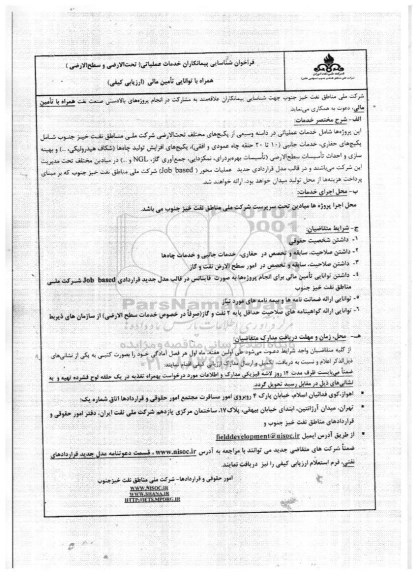 فراخوان شناسایی پیمانکاران خدمات عملیاتی( تحت‌الارضی و سطح‌الارضی )
همراه با توانایی تأمین مالی (ارزیابی کیفی)
شرکت ملی مناطق نفت خیز جنوب جهت شناسایی پیمانکاران علاقه‌مند به مشارکت در انجام پروژه‌های بالادستی صنعت نفت همراه با تأمین
مالی، دعوت به همکاری می‌نماید.
الف- شرح مختصر خدمات:
این پروژه‌ها شامل خدمات عملیاتی در دامنه وسیعی از پکیج‌های مختلف تحت‌الارضی شرکت ملی مناطق نفت خیز جنوب شامل
پکیج‌های حفاری، خدمات جانبی (۱۰ تا ۲۰ حلقه چاه عمودی و افقی)، پکیج‌های افزایش تولید چاه‌ها (شکاف هیدرولیکی، ...) و بهینه
سازی و احداث تأسیسات سطح‌الارضی (تأسیسات بهره‌برداری، نمکزدایی، جمع‌آوری گاز، NGL و ...) در میادین مختلف تحت مدیریت
این شرکت می‌باشند و در قالب مدل قراردادی جدید عملیات محور (Job based) شرکت ملی مناطق نفت خیز جنوب که بر مبنای
پرداخت هزینه‌ها از محل تولید میدان خواهد بود، ارائه خواهند شد.
ب- محل اجرای خدمات:
محل اجرا پروژه ها میادین تحت سرپرست شرکت ملی مناطق نفت خیز جنوب می باشد.
ج- شرایط متقاضیان
۱- داشتن شخصیت حقوقی
۲- داشتن صلاحیت، سابقه و تخصص در حفاری، خدمات جانبی و خدمات چاه‌ها
۳- داشتن صلاحیت، سابقه و تخصص در امور سطح الارض نفت و گاز
۴- داشتن توانایی تأمین مالی برای انجام پروژه‌ها به صورت فاینانس در قالب مدل جدید قراردادی Job based شرکت ملی
مناطق نفت خیز جنوب
۵- توانایی ارائه ضمانت نامه ها و بیمه نامه های مورد نیاز
۶- توانایی ارائه گواهینامه های صلاحیت حداقل پایه ۲ نفت و گاز(صرفاً در خصوص خدمات سطح الارضی) از سازمان های ذیربط
ه- محل، زمان و مهلت دریافت مدارک متقاضیان:
از کلیه متقاضیان واجد شرایط دعوت می‌شود طی اولین هفته ماه اول هر فصل آمادگی خود را بصورت کتبی به یکی از نشانی‌های
ذیل‌الذکر اعلام و نسبت به دریافت، تکمیل و ارسال مدارک ارزیابی کیفی اقدام نمایند.
ضمناً می‌بایست ظرف مدت ۱۴ روز لاشه فیزیکی مدارک و اطلاعات مورد درخواست بهمراه نقدیه در یک حلقه لوح فشرده تهیه و به
نشانی‌های ذیل در مقابل رسید تحویل گردد.
اهواز، کوی فدائیان اسلام، خیابان پارک ۲ روبروی امور مسافرت مجتمع امور حقوقی و قراردادها اتاق شماره یک؛
تهران، میدان آرژانتین، ابتدای خیابان بیهقی، پلاک۱۷، ساختمان مرکزی یازدهم شرکت ملی نفت ایران، دفتر امور حقوقی و
قراردادهای مناطق نفت خیز جنوب و
از طریق آدرس ایمیل fielddevelopment@nisoc.ir
ضمناً شرکت های متقاضی جدید می توانند با مراجعه به آدرس www.nisoc.ir، قسمت دعوتنامه مدل جدید قراردادهای
نفتی، فرم استعلام ارزیابی کیفی را نیز دریافت نمایند.
امور حقوقی و قراردادها- شرکت ملی مناطق نفت خیزجنوب
WWW.NISOC.IR
WWW.SHANA.IR
HTTP://IETS.MPORG.IR